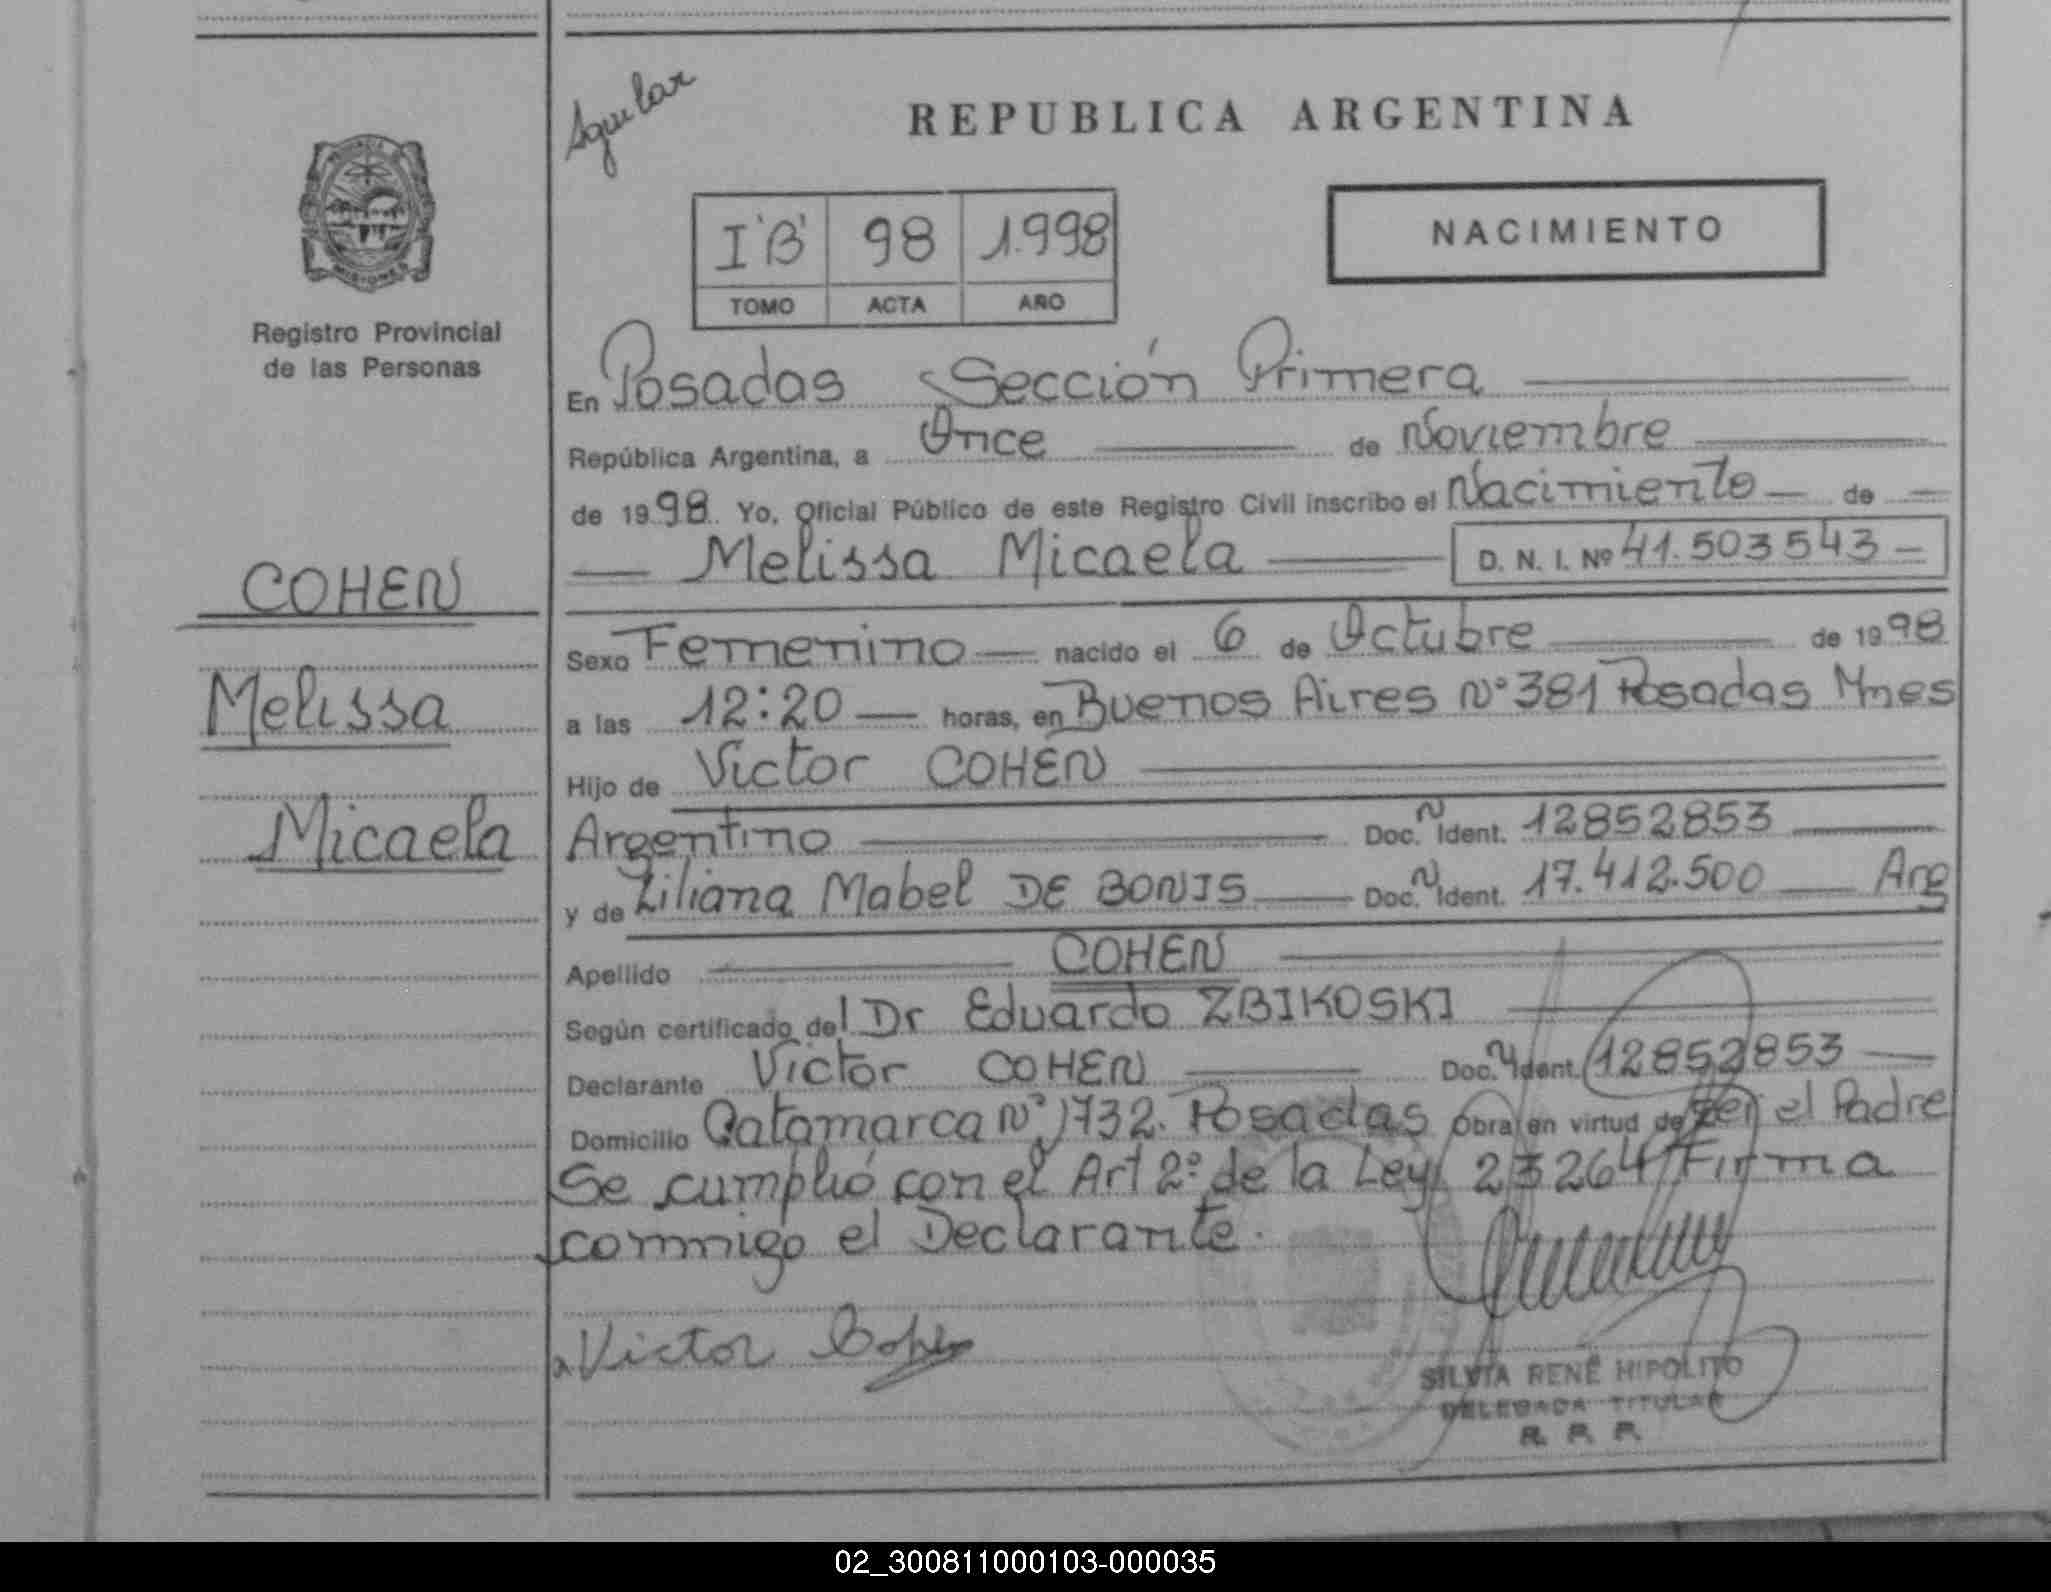 Aguilar
REPUBLICA ARGENTINA
I 'B' 98 1.998
TOMO ACTA AÑO
NACIMIENTO
MISIONES
Registro Provincial
de las Personas
COHEN
Melissa
Micaela
En Posadas Sección Primera
República Argentina, a Once de Noviembre
de 1998. Yo, Oficial Público de este Registro Civil inscribo el Nacimiento de
Melissa Micaela D. N. I. Nº 41.503543
Sexo Femenino nacido el 6 de Octubre de 1998
a las 12:20 horas, en Buenos Aires Nº 381 Posadas Mnes
Hijo de Victor COHEN
Argentino Doc. N Ident. 12852853
y de Liliana Mabel DE BONIS Doc. N Ident. 17.412.500 Arg
Apellido COHEN
Según certificado del Dr Eduardo ZBIKOSKI
Declarante Victor COHEN Doc. N Ident. 12852853
Domicilio Catamarca Nº 1732. Posadas Obra en virtud de ser el Padre
Se cumplió con el Art 2º de la Ley 23264 Firma
conmigo el Declarante.
Victor Cohen
SILVIA RENÉ HIPOLITO
DELEGADA TITULAR
R. P. P.
02_300811000103-000035